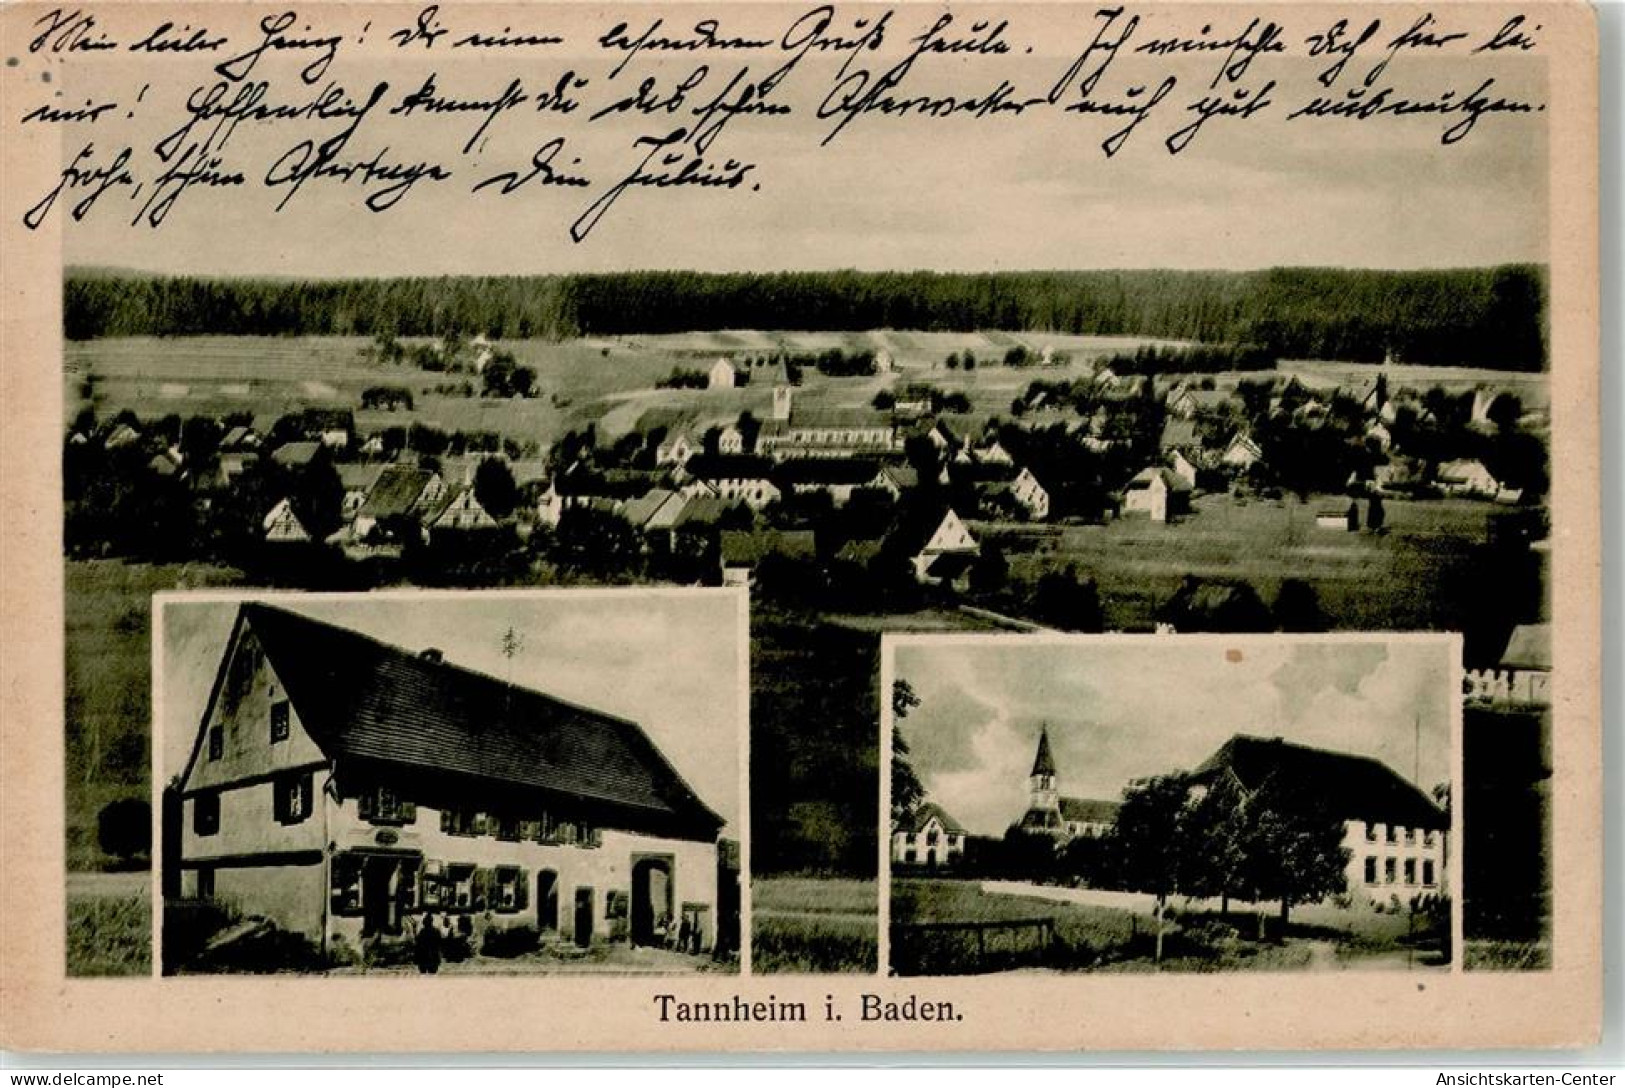 Mein lieber Heinz! Dir einen besonderen Gruß heute. Ich wünschte Dich hier bei
mir! Hoffentlich kannst du das schöne Osterwetter auch gut ausnutzen.
Frohe, schöne Ostertage! Dein Julius.
Tannheim i. Baden.
delcampe.net
Ansichtskarten-Center